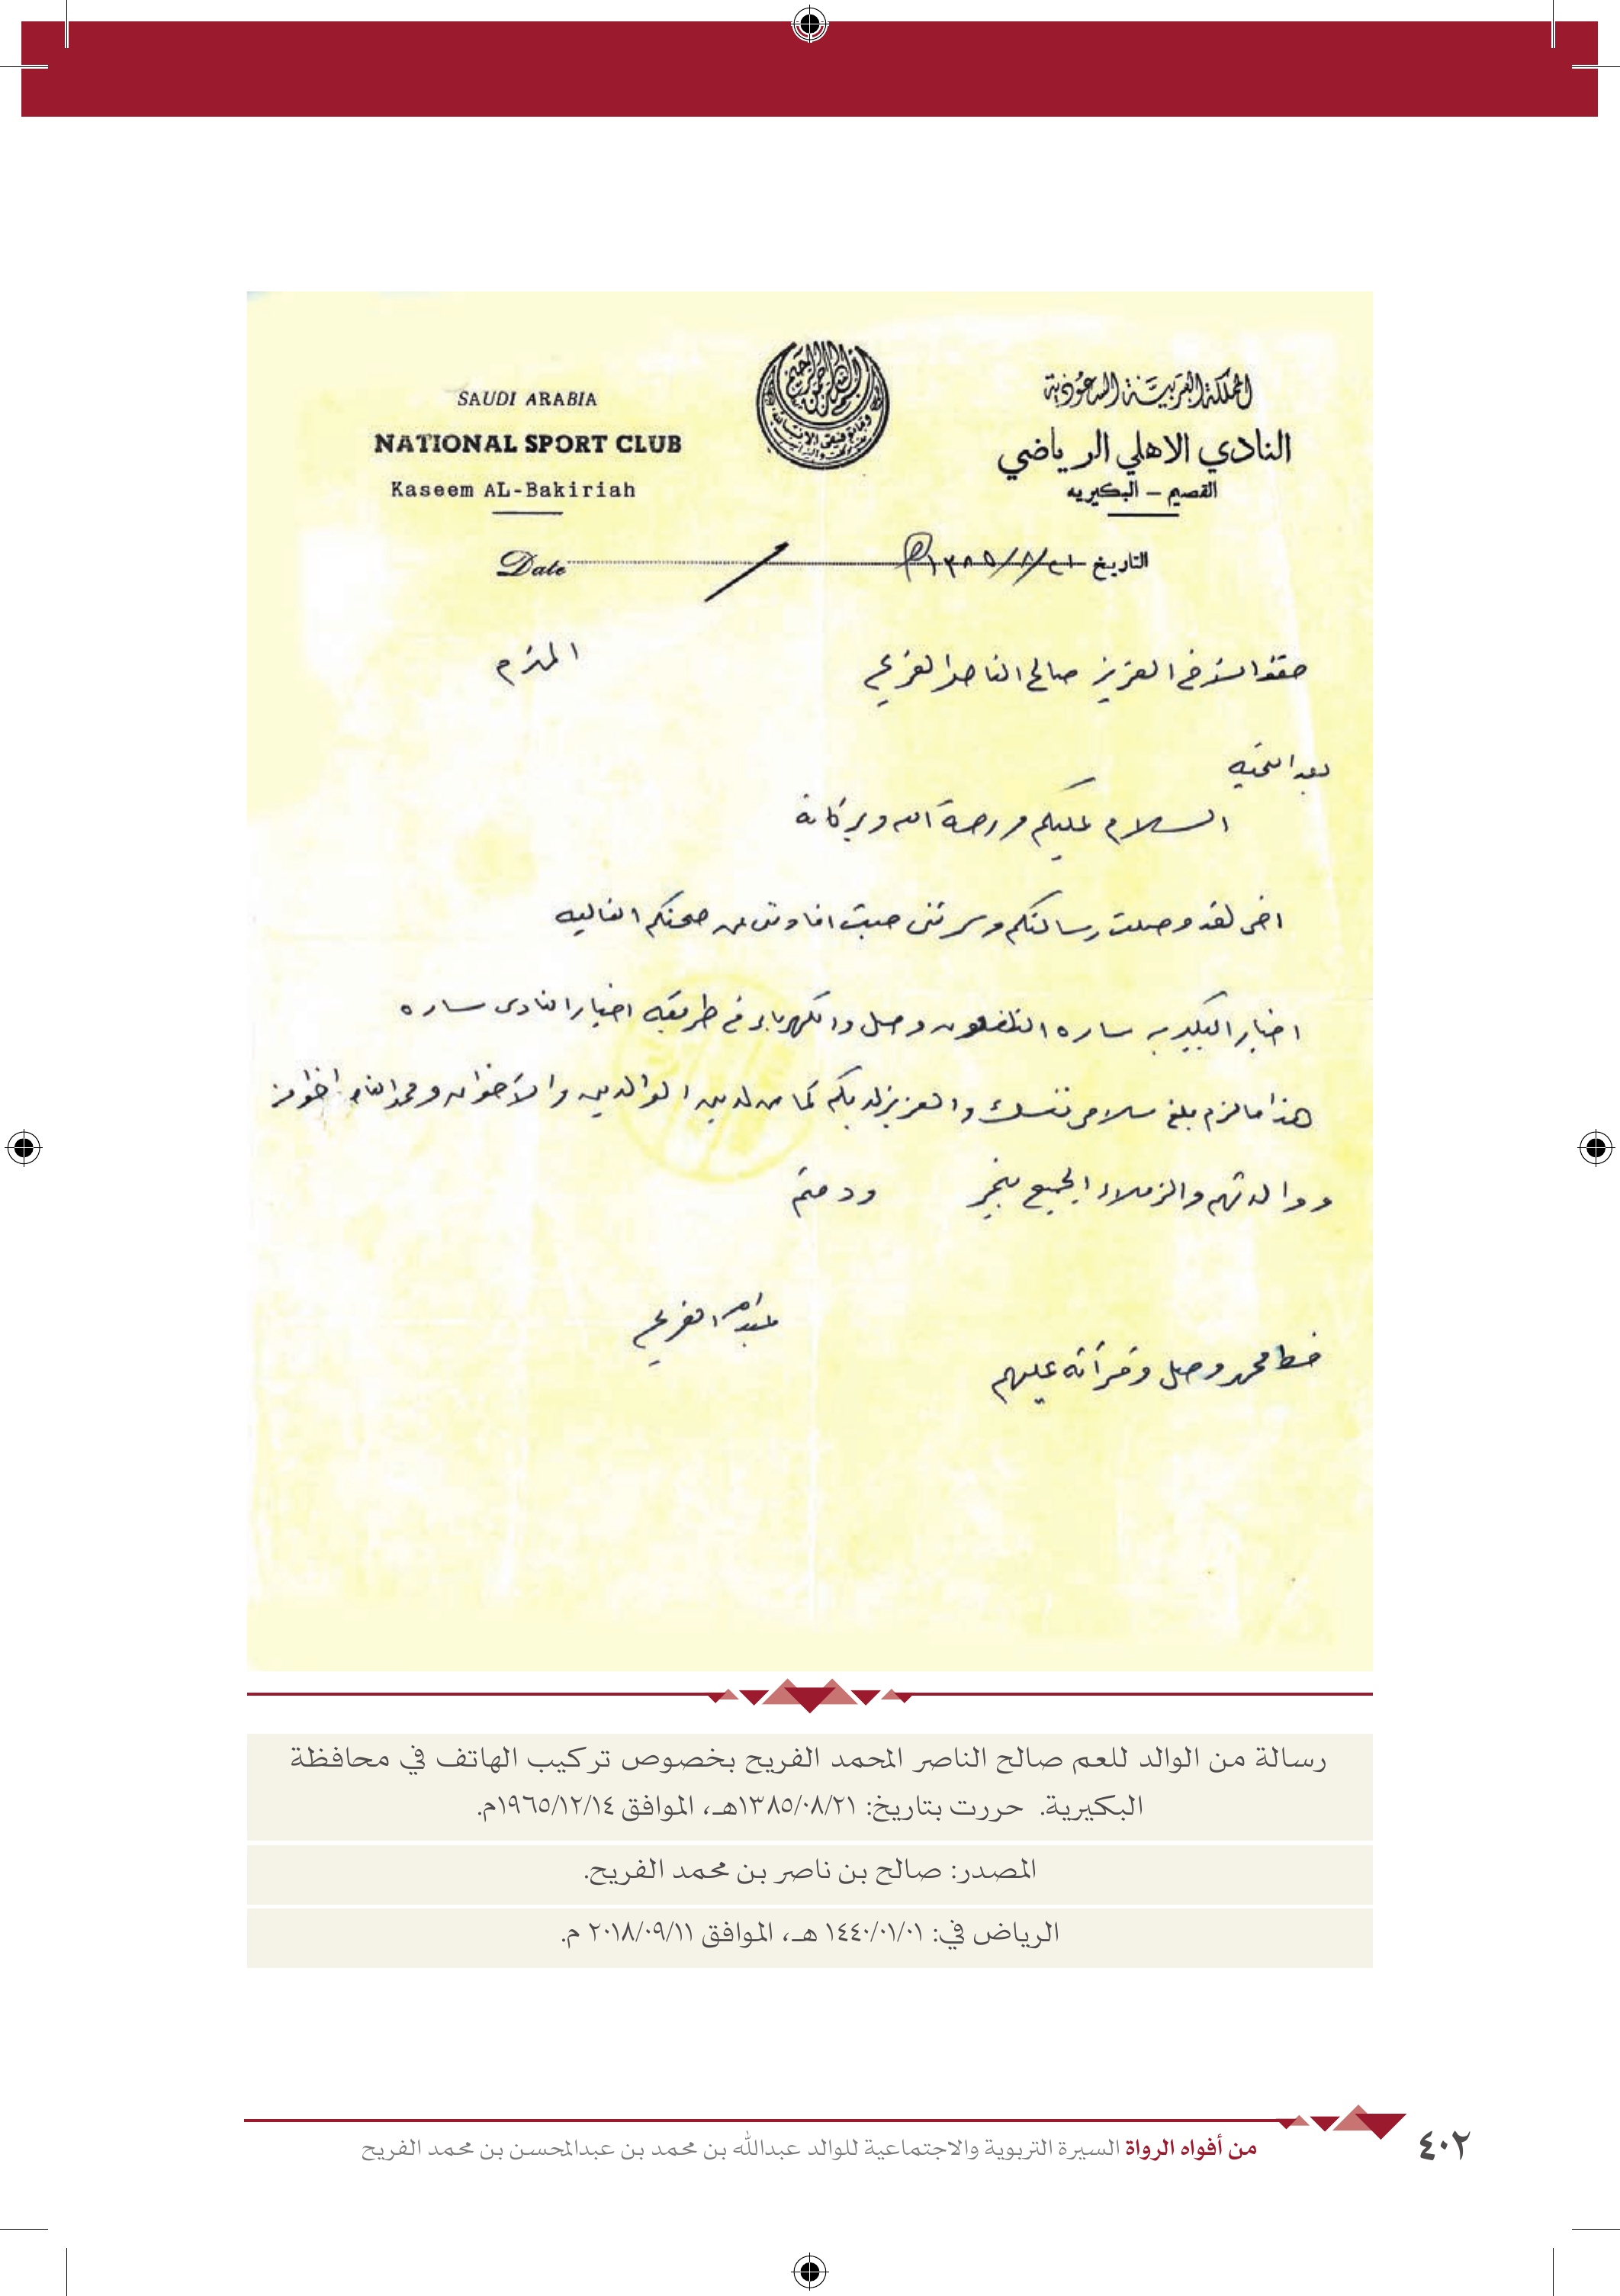 المملكة العربية السعودية
النادي الاهلي الرياضي
القصيم – البكيريه
SAUDI ARABIA
NATIONAL SPORT CLUB
Kaseem AL-Bakiriah
التاريخ ٢١/٨/١٣٨٥ه
Date
الاخ العزيز صالح الناصر الفريح المحترم
بعد التحيه
السلام عليكم ورحمة الله وبركاته
اخي لقد وصلت رسالتكم وسرتني حيث افادتني عن صحتكم الغاليه
اخبار البكيريه ساره التلفون وصل والكهرباء في طريقه اخبار النادى ساره
هذا مالزم بلغ سلامى نفسك والعزيز لديكم كما من لدينا الوالدين والاخوان ومحمد
ووالدتهم والزملاء الجميع بخير ودمتم
عبدالله الفريح
خط محمد وصل وقرأته عليهم
رسالة من الوالد للعم صالح الناصر المحمد الفريح بخصوص تركيب الهاتف في محافظة
البكيرية. حررت بتاريخ: ١٣٨٥/٠٨/٢١هـ، الموافق ١٩٦٥/١٢/١٤م.
المصدر: صالح بن ناصر بن محمد الفريح.
الرياض في: ١٤٤٠/٠١/٠١ هـ، الموافق ٢٠١٨/٠٩/١١ م.
من أفواه الرواة السيرة التربوية والاجتماعية للوالد عبدالله بن محمد بن عبدالمحسن بن محمد الفريح
٤٠٢